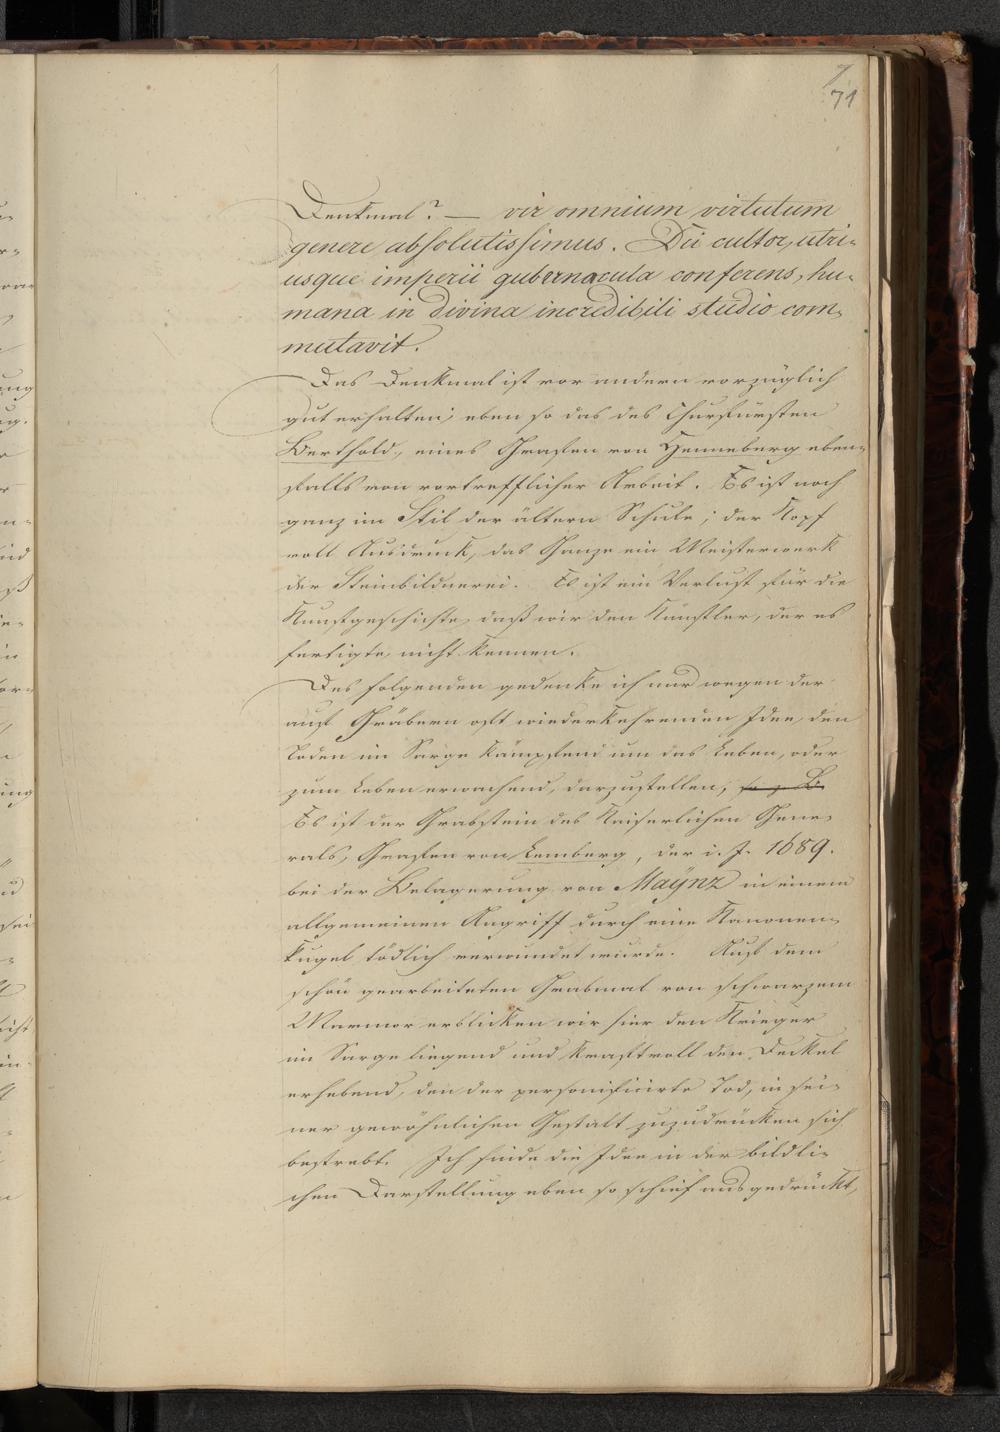 7
71
Denkmal? — vir omnium virtutum
genere absolutissimus. Dii cultor, utri-
usque imperii gubernacula conferens, hu-
mana in divina incredibili studio com-
mutavit.
Das Denkmal ist vor andern vorzüglich
gut erhalten; eben so das des Churfürsten
Berthold, eines Grafen von Henneberg eben-
falls von vortrefflicher Arbeit. Es ist noch
ganz im Stil der ältern Schule; der Kopf
voll Ausdruck, das Ganze ein Meisterwerk
der Steinbildnerei. Es ist ein Verlust für die
Kunstgeschichte, daß wir den Künstler, der es
fertigte, nicht kennen.
Des folgenden gedenke ich nur wegen der
auf Gräbern oft wiederkehrenden Idee, den
Toden im Sarge kämpfend um das Leben, oder
zum Leben erwachend, darzustellen; so z. B.
Es ist der Grabstein des Kaiserlichen Gene-
rals, Grafen von Lemberg, der i. J. 1689.
bei der Belagerung von Maÿnz in einem
allgemeinen Angriff durch eine Kanonen-
kugel tödlich verwundet wurde. Auf dem
schön gearbeiteten Grabmal von schwarzem
Marmor erblicken wir hier den Krieger
im Sarge liegend und kraftvoll den Deckel
erhebend, den der personificirte Tod, in sei-
ner gewöhnlichen Gestalt zuzudrücken sich
bestrebt. Ich finde die Idee in der bildli-
chen Darstellung eben so schief ausgedrückt,